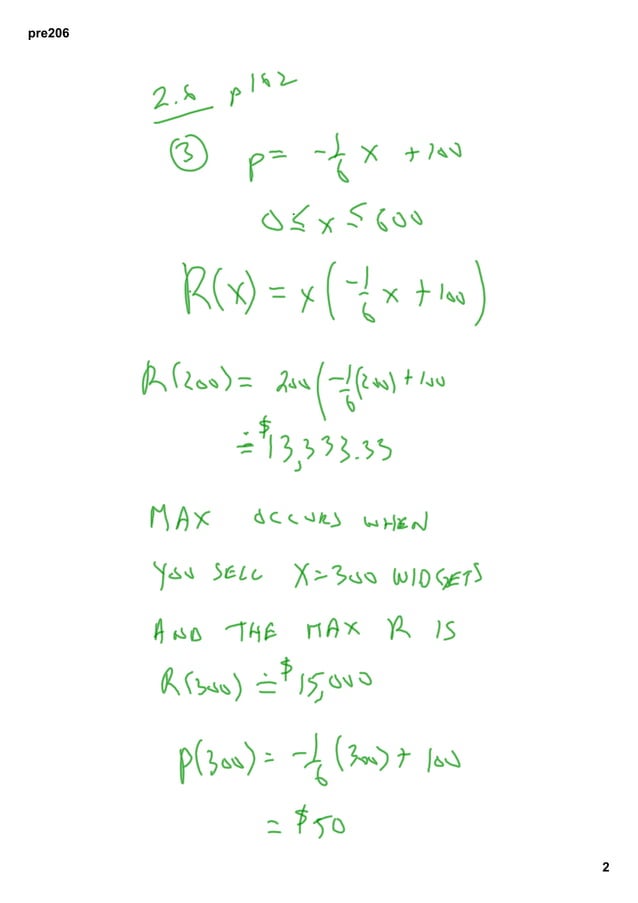 pre206
2.6 p162
③ p = -1/6 x + 100
0 ≤ x ≤ 600
R(x) = x(-1/6 x + 100)
R(200) = 200(-1/6(200) + 100
≐ $13,333.33
MAX OCCURS WHEN
YOU SELL X=300 WIDGETS
AND THE MAX R IS
R(300) ≐ $15,000
p(300) = -1/6 (300) + 100
= $50
2